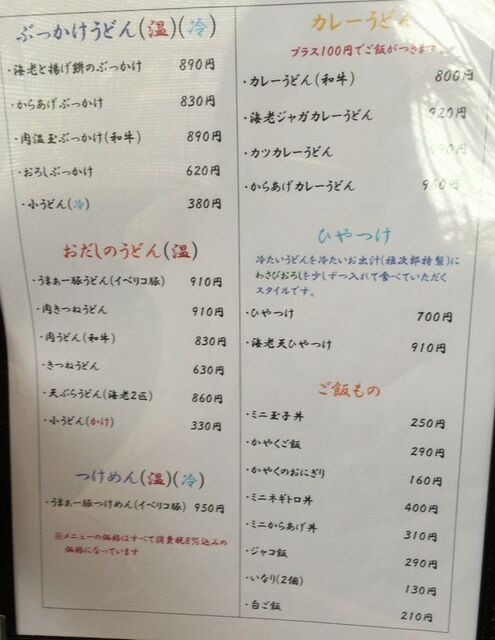 ぶっかけうどん(温)(冷)
・海老と揚げ餅のぶっかけ 890円
・からあげぶっかけ 830円
・肉温玉ぶっかけ(和牛) 890円
・おろしぶっかけ 620円
・小うどん(冷) 380円
おだしのうどん(温)
・うまぁー豚うどん(イベリコ豚) 910円
・肉きつねうどん 910円
・肉うどん(和牛) 830円
・きつねうどん 630円
・天ぷらうどん(海老2匹) 860円
・小うどん(かけ) 330円
つけめん(温)(冷)
・うまぁー豚つけめん(イベリコ豚) 950円
※メニューの価格はすべて消費税8%込みの
価格になっています
カレーうどん
プラス100円でご飯がつきます。
・カレーうどん(和牛) 800円
・海老ジャガカレーうどん 920円
・カツカレーうどん 円
・からあげカレーうどん 円
ひやつけ
冷たいうどんを冷たいお出汁(雅次郎特製)に
わさびおろしを少しずつ入れて食べていただく
スタイルです。
・ひやつけ 700円
・海老天ひやつけ 910円
ご飯もの
・ミニ玉子丼 250円
・かやくご飯 290円
・かやくのおにぎり 160円
・ミニネギトロ丼 400円
・ミニからあげ丼 310円
・ジャコ飯 290円
・いなり(2個) 130円
・白ご飯 210円